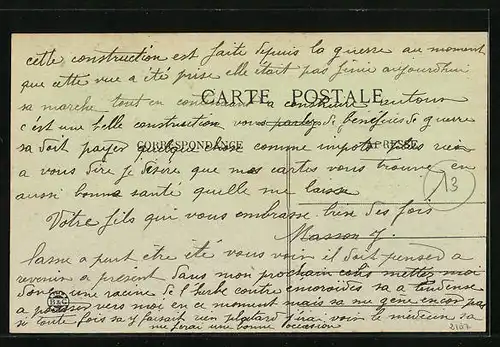 cette construction est faite depuis la guerre au moment
que cette vue a été prise elle était pas finie aujourdhui
sa marche tout en continuant a construire autour
CARTE POSTALE
c'est une belle construction vous parlez de bénéfices de guerre
CORRESPONDANCE
ADRESSE
sa doit payer quelque chose comme impots plus rien
a vous dire je desire que mes cartes vous trouve en
aussi bonne santé quelle me laisse
13
Votre fils qui vous embrasse bien des fois
Masson J.
a peut etre été vous voir il doit penser a
revenir a present dans mon prochain colis mettez moi
donc une racine de l'herbe contre emoroides sa a tendense
B&G
a pousser vers moi en ce moment mais sa me gène encor pas
si toute fois sa y faisait rien plutard j'irai voir le medecin sa
me ferai une bonne occasion
2107